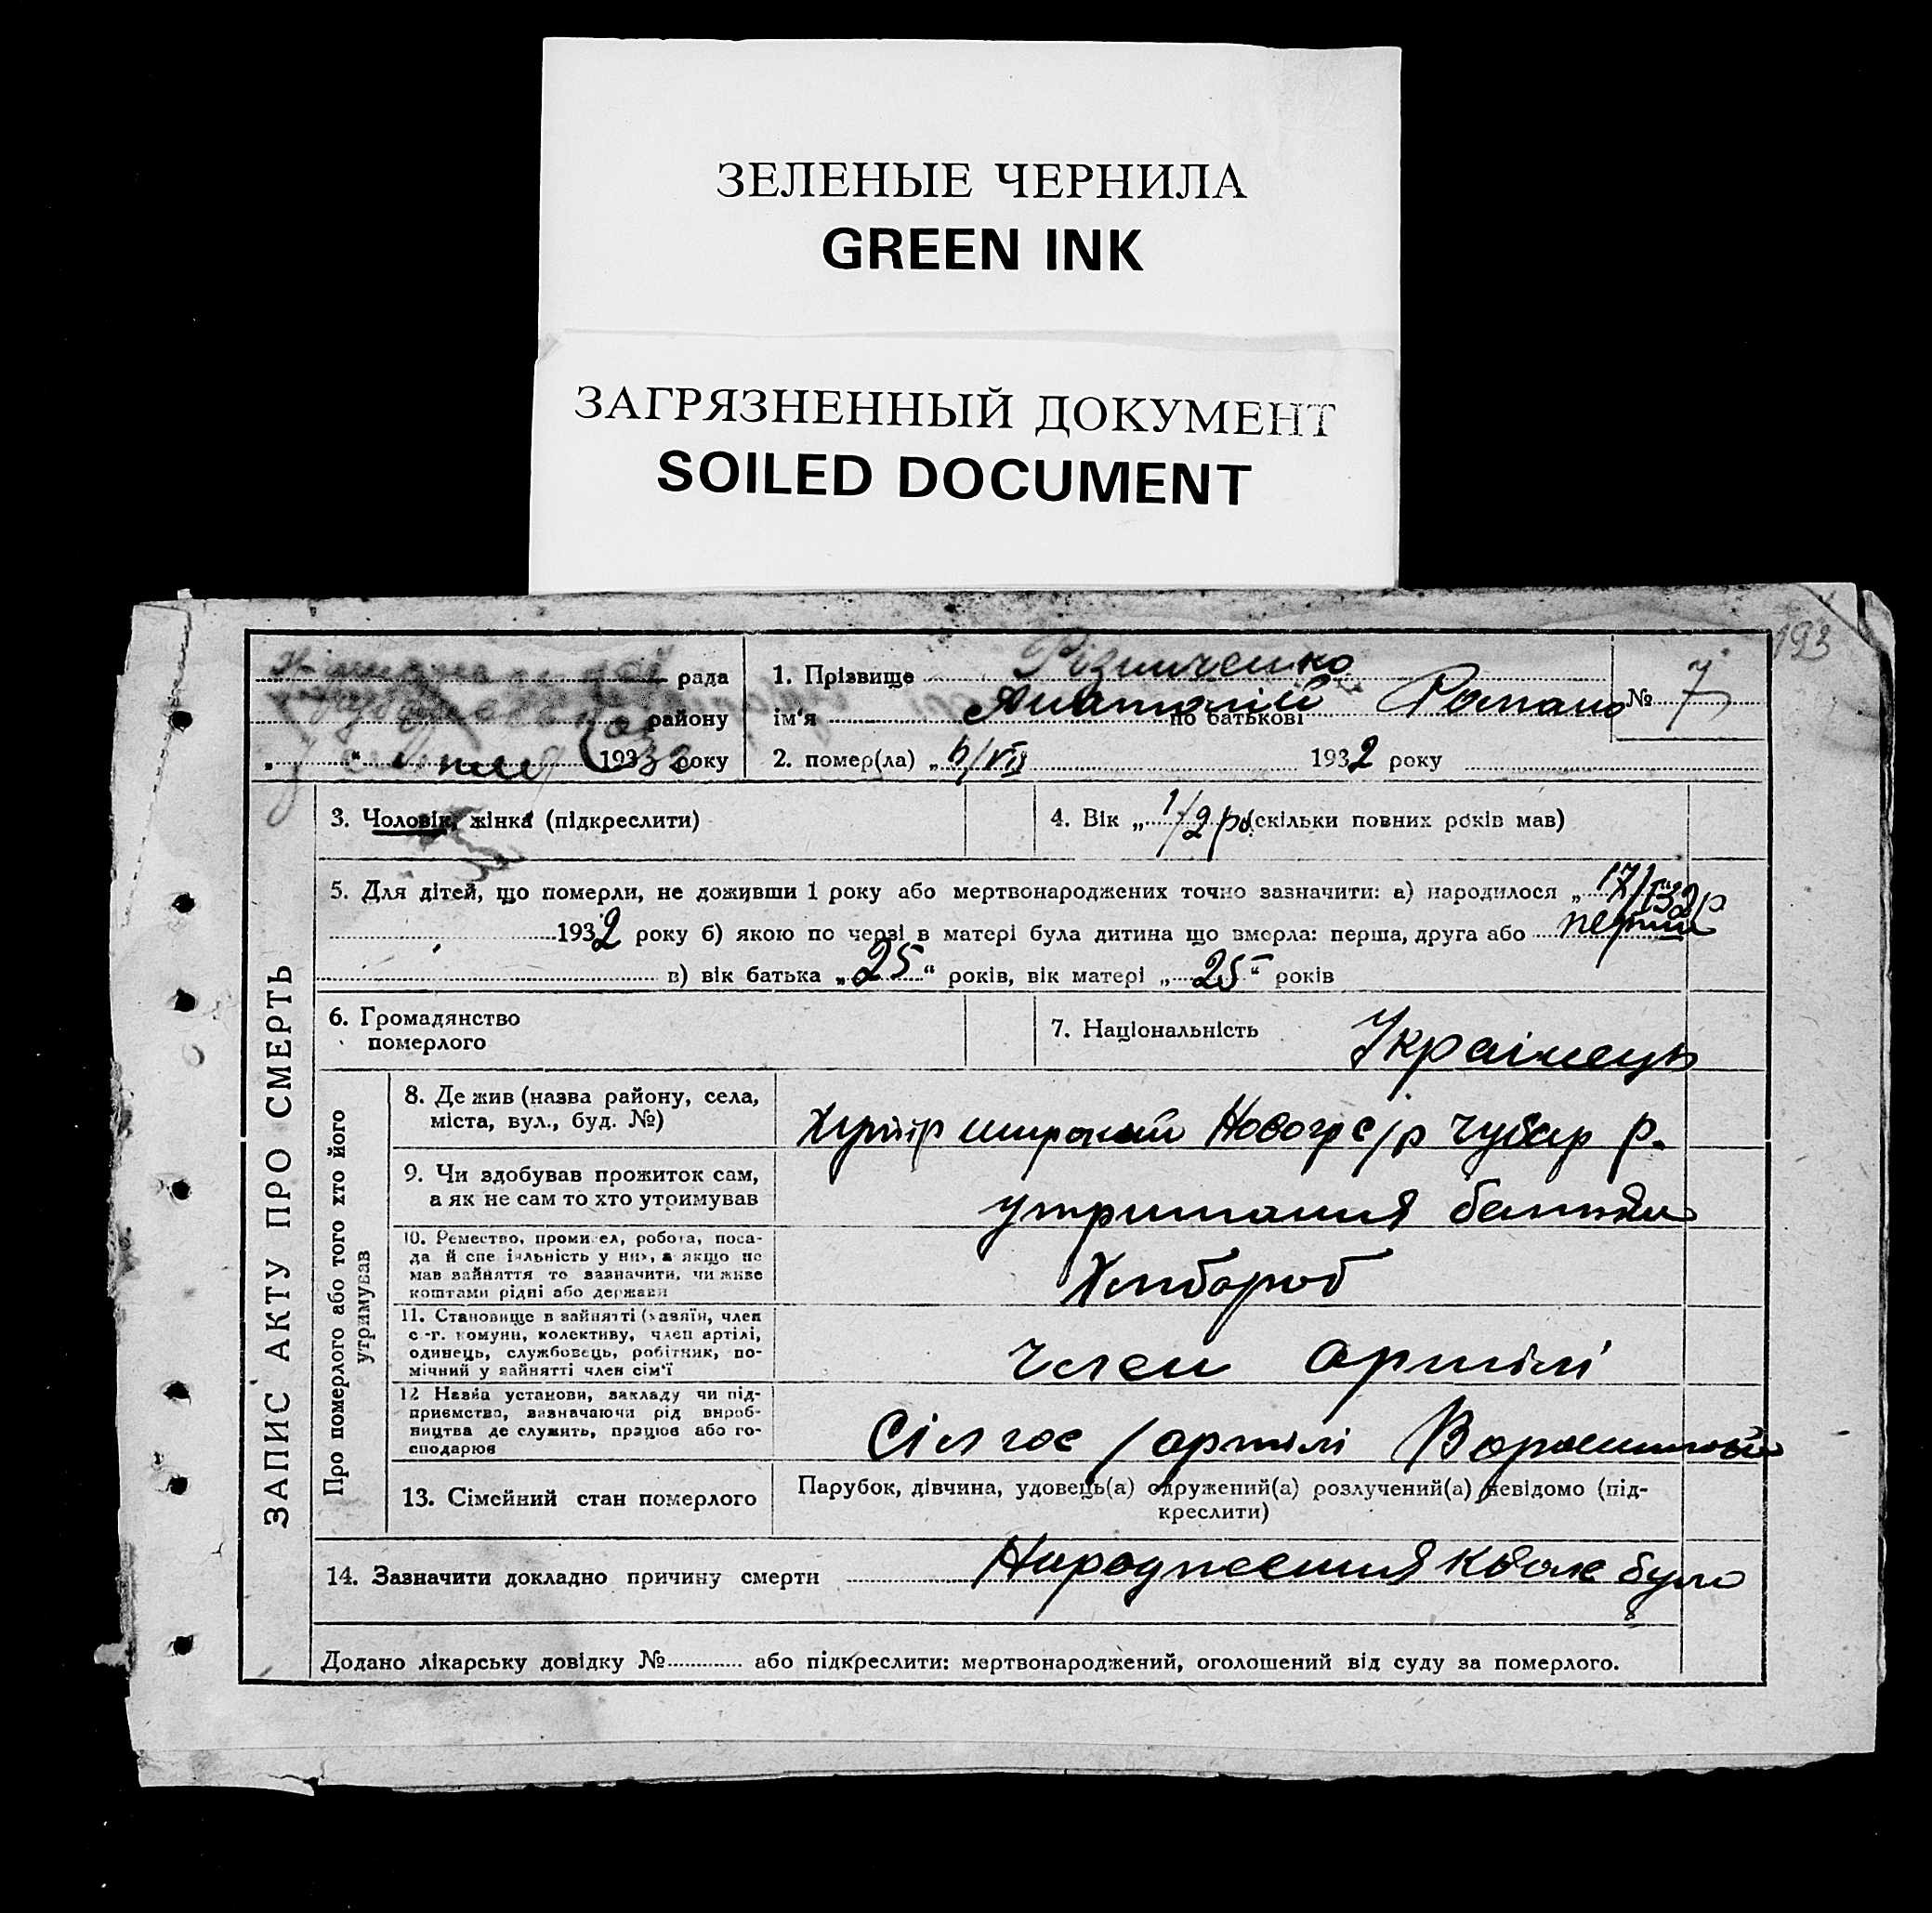 ЗЕЛЕНЫЕ ЧЕРНИЛА
GREEN INK
ЗАГРЯЗНЕННЫЙ ДОКУМЕНТ
SOILED DOCUMENT
193
рада
району
1932 року
1. Прізвище Різниченко
ім'я Анатолій по батькові Романо
№ 7
2. помер(ла) „6/VII 1932 року
ЗАПИС АКТУ ПРО СМЕРТЬ
3. Чоловік, жінка (підкреслити)
4. Вік „1/2 р. (скільки повних років мав)
5. Для дітей, що померли, не доживши 1 року або мертвонароджених точно зазначити: а) народилося „17/
1932 року б) якою по черзі в матері була дитина що вмерла: перша, друга або перша
в) вік батька „25“ років, вік матері „25“ років
6. Громадянство
померлого
7. Національність Українець
Про померлого або того хто його
утримував
8. Де жив (назва району, села,
міста, вул., буд. №)
Хутір широкий Новогр с/р Чубар р.
9. Чи здобував прожиток сам,
а як не сам то хто утримував
утримання батьки
10. Ремество, промисел, робота, поса-
да й спеціяльність у них, а якщо не
мав зайняття то зазначити, чи живе
коштами рідні або держави
Хлібороб
11. Становище в зайнятті (хазяїн, член
с.-г. комуни, колективу, член артілі,
одинець, службовець, робітник, по-
мічний у зайнятті член сім'ї
Член артілі
12 Назва установи, закладу чи під-
приємства, зазначаючи рід вироб-
ництва де служить, працює або го-
сподарює
Сілгос / артілі
13. Сімейний стан померлого
Парубок, дівчина, удовець(а) одружений(а) розлучений(а) невідомо (під-
креслити)
14. Зазначити докладно причину смерти було
Додано лікарську довідку № або підкреслити: мертвонароджений, оголошений від суду за померлого.